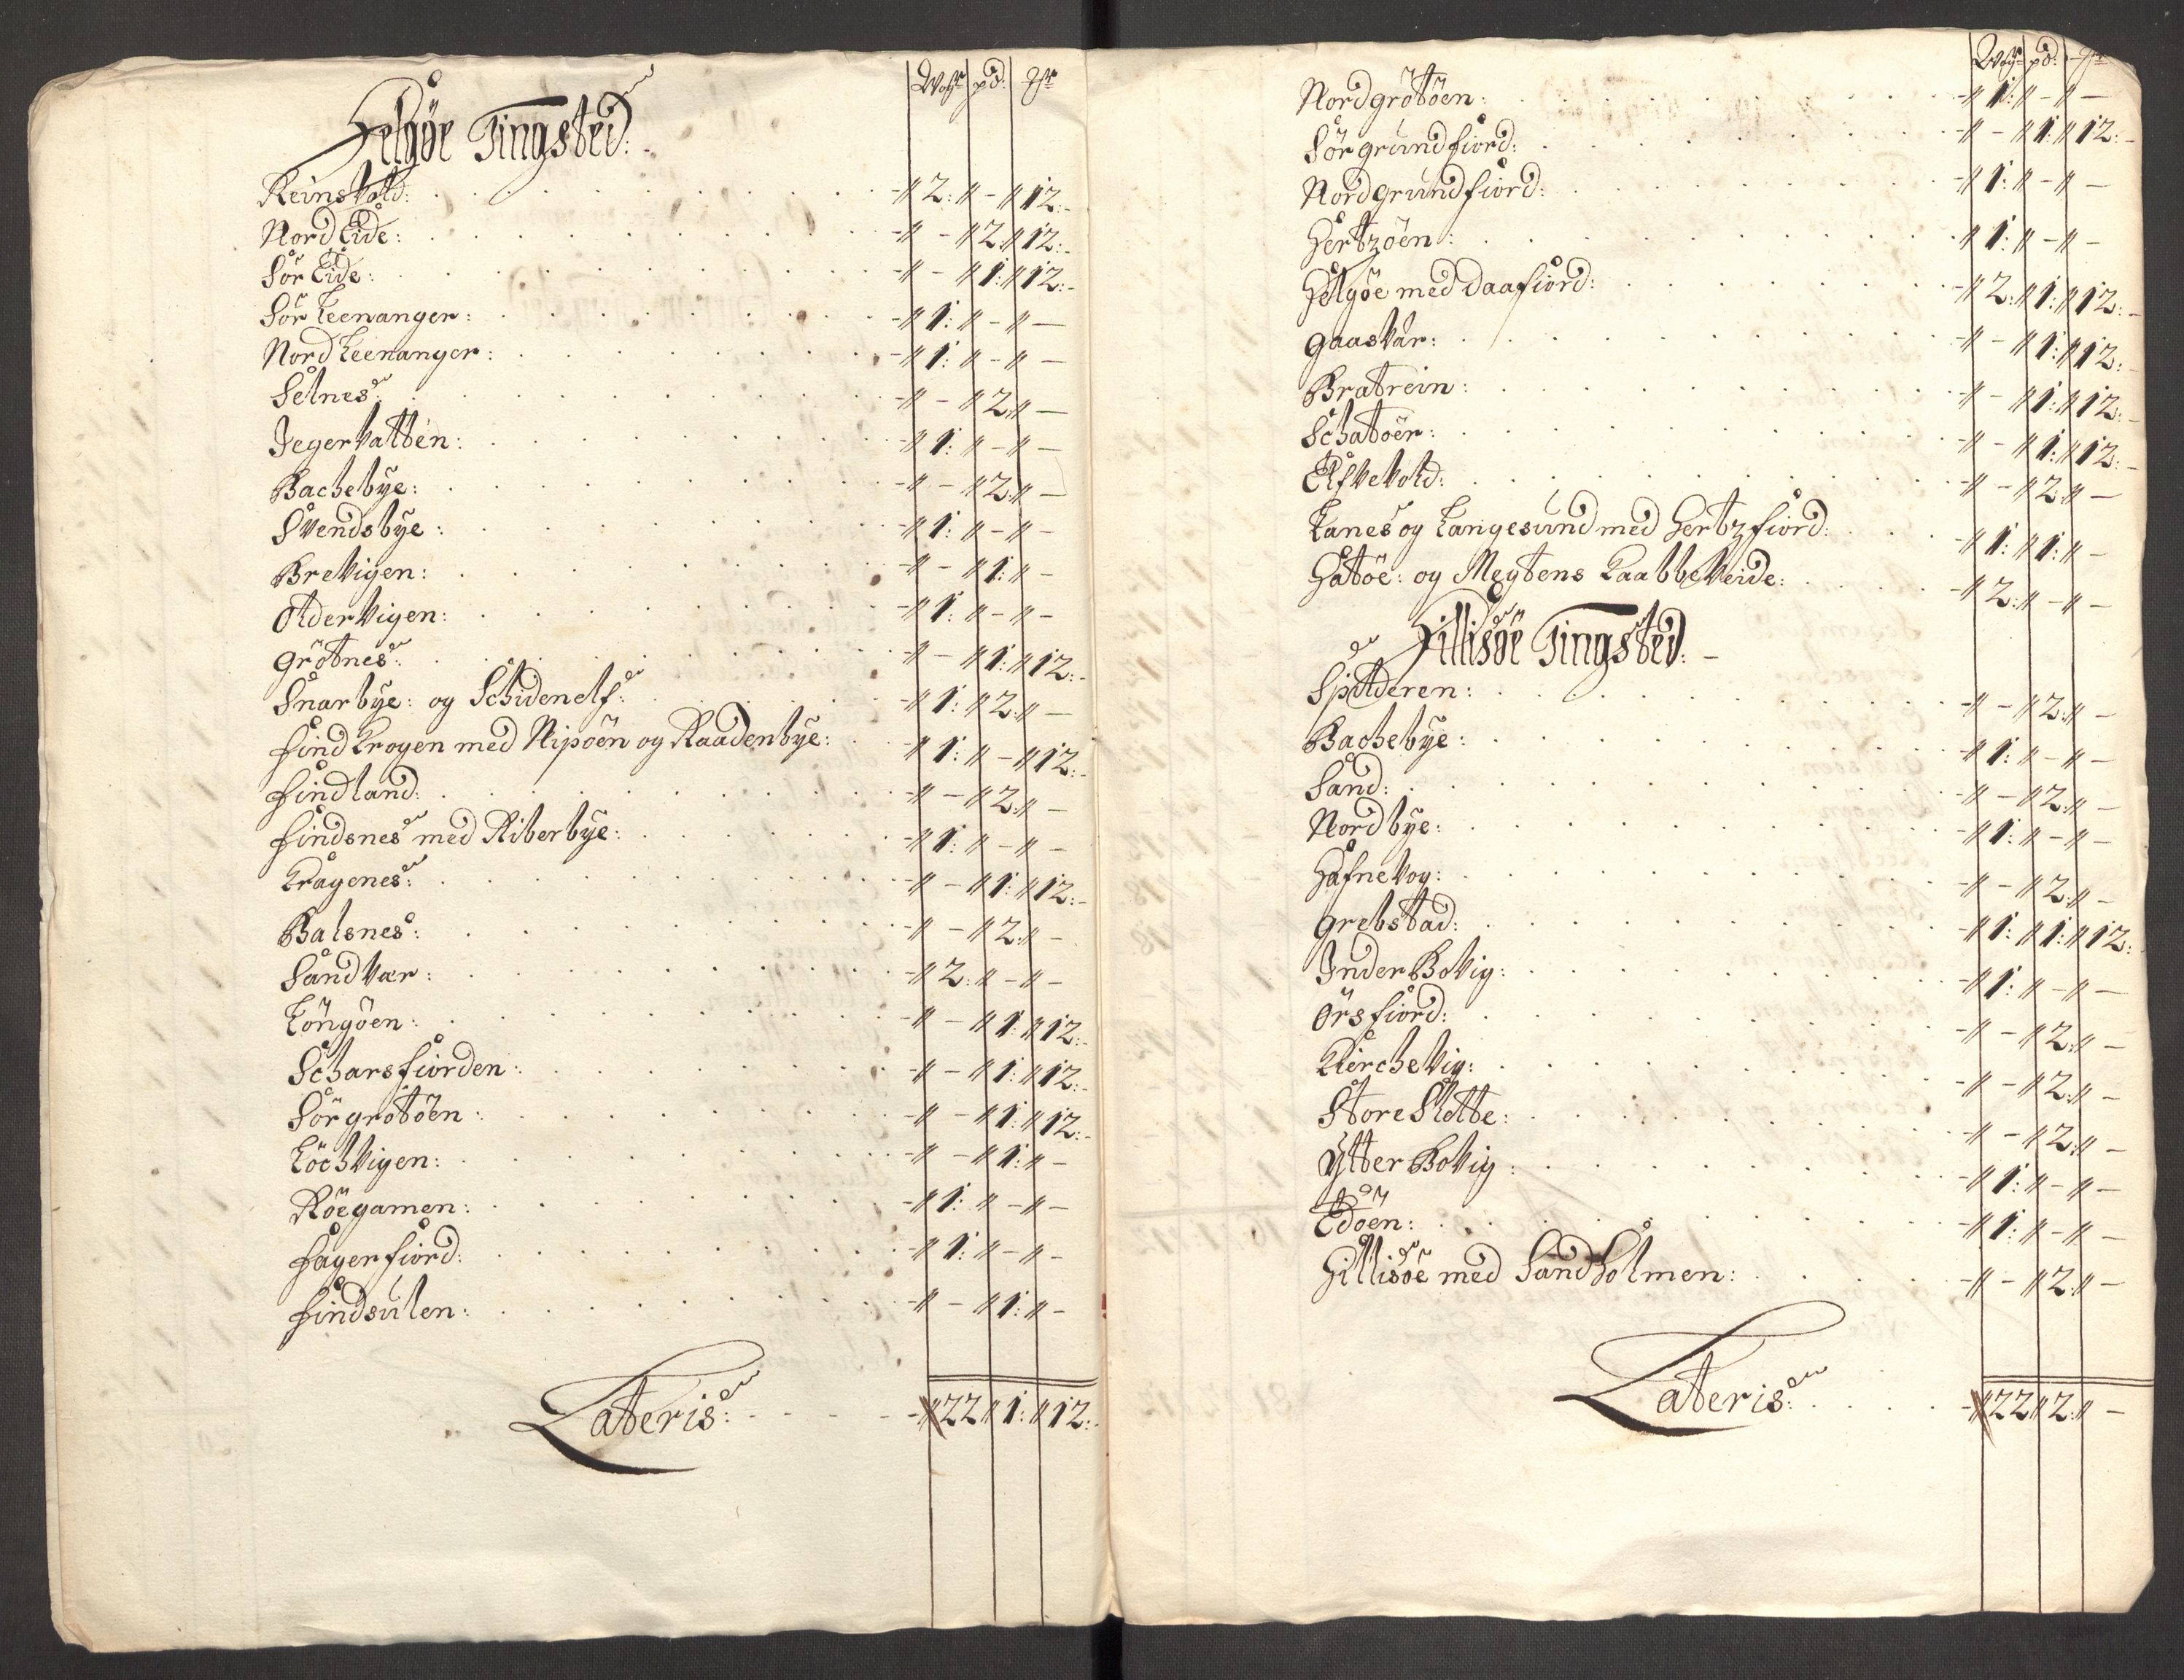 Wogr pd: Mr
Helgöe Tingsted:
Reinskold: - 2: - 12:
Nord Eide: - - 2: 12:
Sör Eide: - - 1: 12:
Sör Leenanger: - 1: - -
Nord Leenanger: - 1: - -
Selnes: - - 2: -
Jegervatten: - 1: - -
Bachebye: - - 2: -
Svendsbye: - 1: - -
Brevigen: - - 1: -
Oldervigen: - 1: - -
Grötnes: - - 1: 12:
Snarbye: og Schidenelf: - 1: 2: -
Find Krogen med Nipöen og Raadenbye: - 1: - 12:
Findland: - - 2: -
Findsnes med Riberbye: - 1: - -
Kragenes: - - 1: 12:
Balsnes: - - 2: -
Sandvær: - 2: - -
Löngöen: - - 1: 12:
Scharsfiorden: - - 1: 12:
Sörgrotöen: - - 1: 12:
Löchvigen: - - 1: -
Röegamen: - 1: - -
Fagerfiord: - 1: - -
Findsulen: - - 1: -
Lateris: - 22 1: 12:
Wogr pd: Mr
Nordgrötöen: - 1: - -
Sörgrundfiord: - - 1: 12:
Nordgrundfiord: - 1: - -
Hertzöen: - 1: - -
Helgöe med Daafiord: - 2: 1: 12:
Gaasvær: - - 1: 12:
Bratrein: - - 1: 12:
Schatöer: - - 1: 12:
Elfvevold: - - 2: -
Lanes og Langesund med Hertzfiord: - 1: 1: -
Hatöe: og Meytens Kaabbeveide: - 2: - -
Hillisöe Tingsted:
Spilderen: - - 2: -
Bachebye: - 1: - -
Sand: - - 2: -
Nordbye: - 1: - -
Hafnevog: - - 2: -
Grebstad: - 1: 1: 12:
Inder Bovig: - 1: - -
Örsfiord: - - 2: -
Kierchevig: - - 2: -
Store Slette: - - 2: -
Ytter Bovig: - 1: - -
Edöen: - 1: - -
Hillisöe med Sandholmen: - - 2: -
Lateris: - 22 2: -